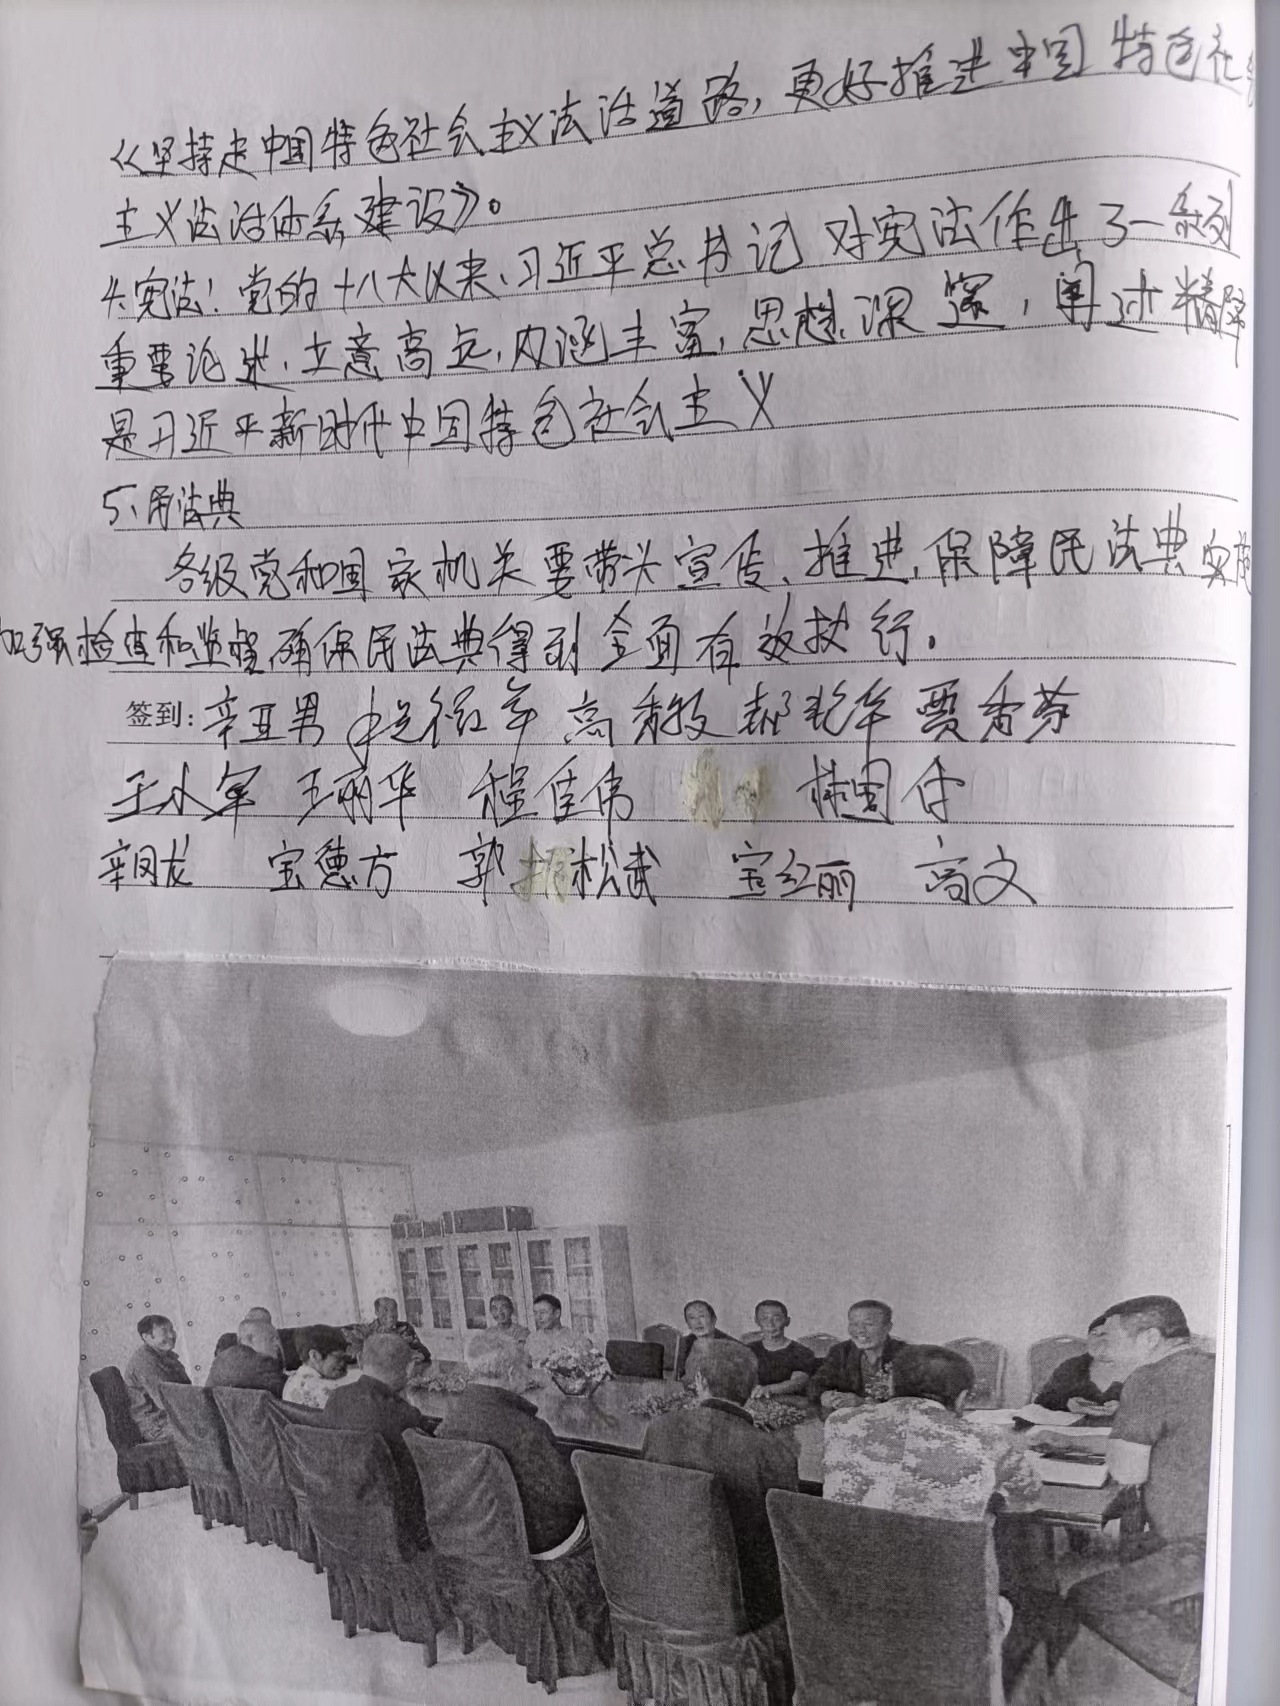 《坚持走中国特色社会主义法治道路，更好推进中国特色社会
主义法治体系建设》。
4、宪法：党的十八大以来、习近平总书记对宪法作出了一系列
重要论述、立意高远，内涵丰富，思想深邃，阐述精辟
是习近平新时代中国特色社会主义
5、民法典
各级党和国家机关要带头宣传、推进、保障民法典实施
加强检查和监督，确保民法典得到全面有效执行。
签到：辛亚男 高 贾香芬
王小军 王丽华 程佳伟 林国
辛凤龙 宝德方 郭松武 宝红丽 高文